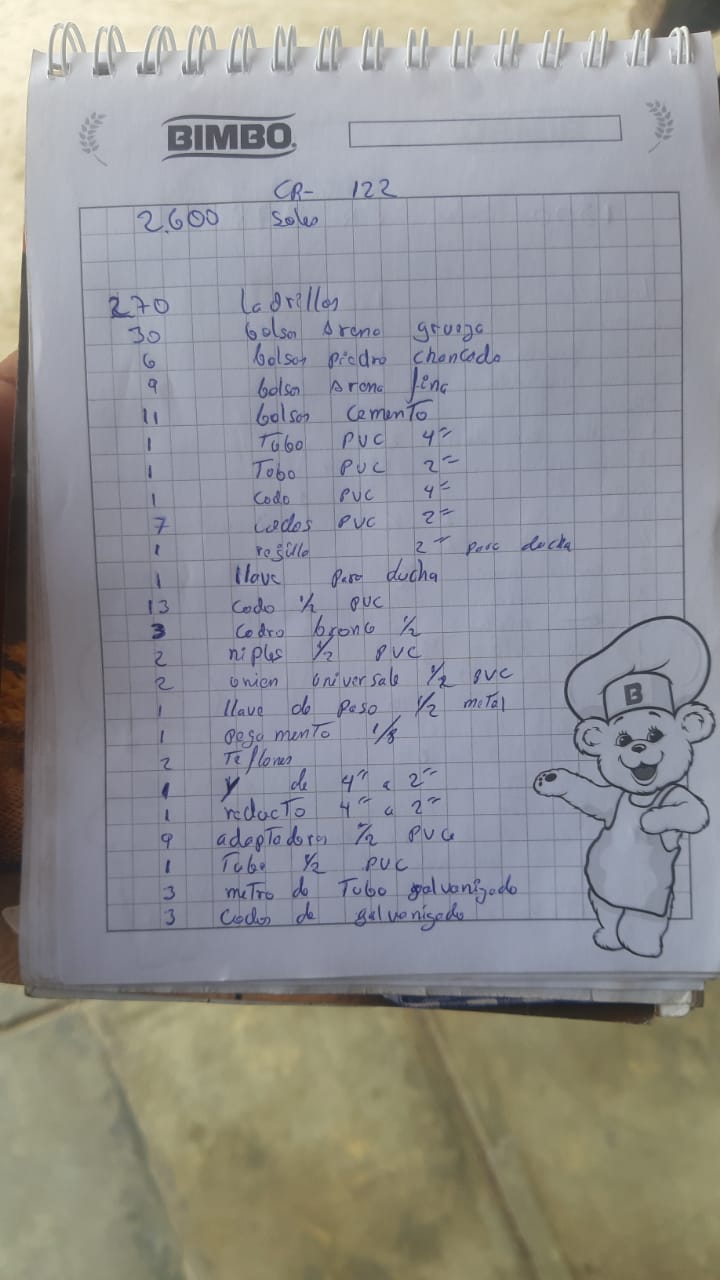 BIMBO
CR- 122
2.600 Soles
270 Ladrillos
30 bolsas Arena grueza
6 bolsas Piedra Chancada
9 bolsas Arena fina
11 bolsas Cemento
1 Tubo PVC 4"
1 Tobo PVC 2"
1 Codo PVC 4"
7 codos PVC 2"
1 regilla 2" para ducha
1 llave para ducha
13 Codo 1/2 PVC
3 Codro bronc 1/2
2 niples 1/2 PVC
2 onion universale 1/2 PVC
1 llave de paso 1/2 metal
1 pegamento 1/8
2 Teflones
1 Y de 4" a 2"
1 reducto 4" a 2"
9 adaptadores 1/2 PVC
1 Tubo 1/2 PVC
3 metro de Tubo galvanizado
3 Codos de galvanizado
B